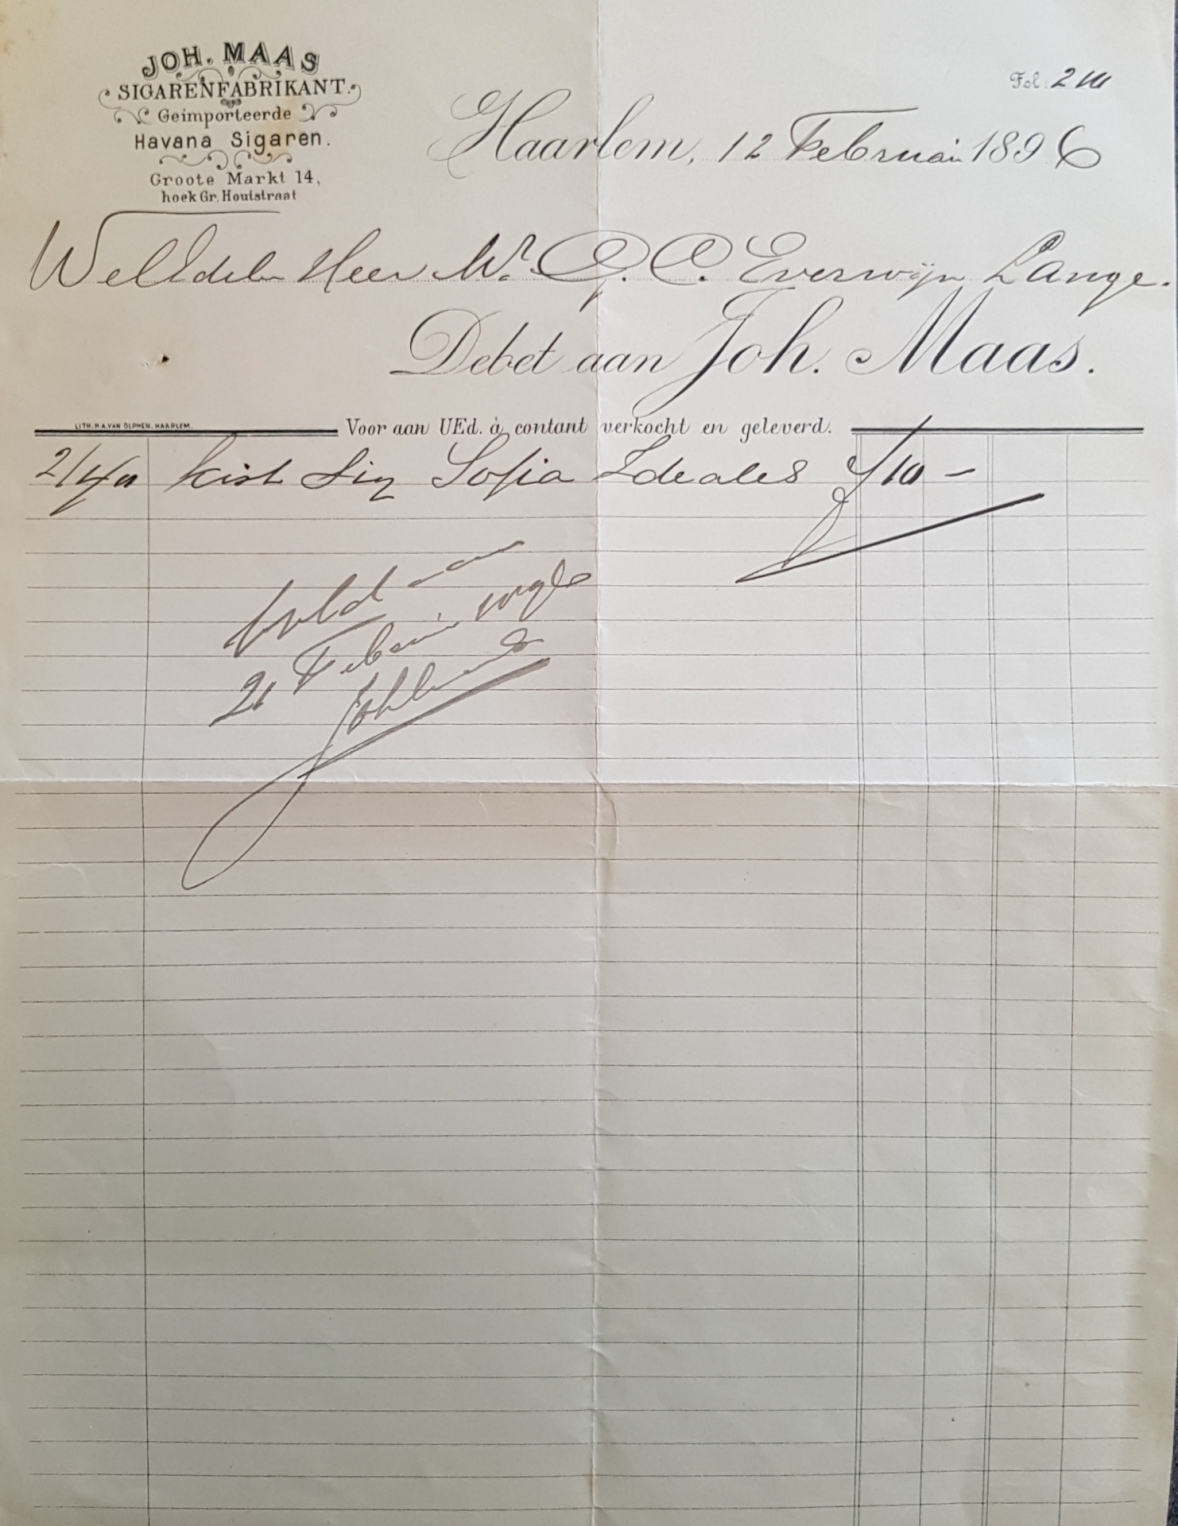 JOH. MAAS
SIGARENFABRIKANT.
Geimporteerde
Havana Sigaren.
Groote Markt 14,
hoek Gr. Houtstraat
Fol: 2
Haarlem, 12 Februari 1896
WelEdelen Heer Mr. G. C. Everwijn Lange.
Debet aan Joh. Maas.
LITH. P.A. VAN OLPHEN, HAARLEM.
Voor aan UEd. à contant verkocht en geleverd.
kist Sig Sofia Ideales f 10 –
Voldaan
21 Februari
JohMaas